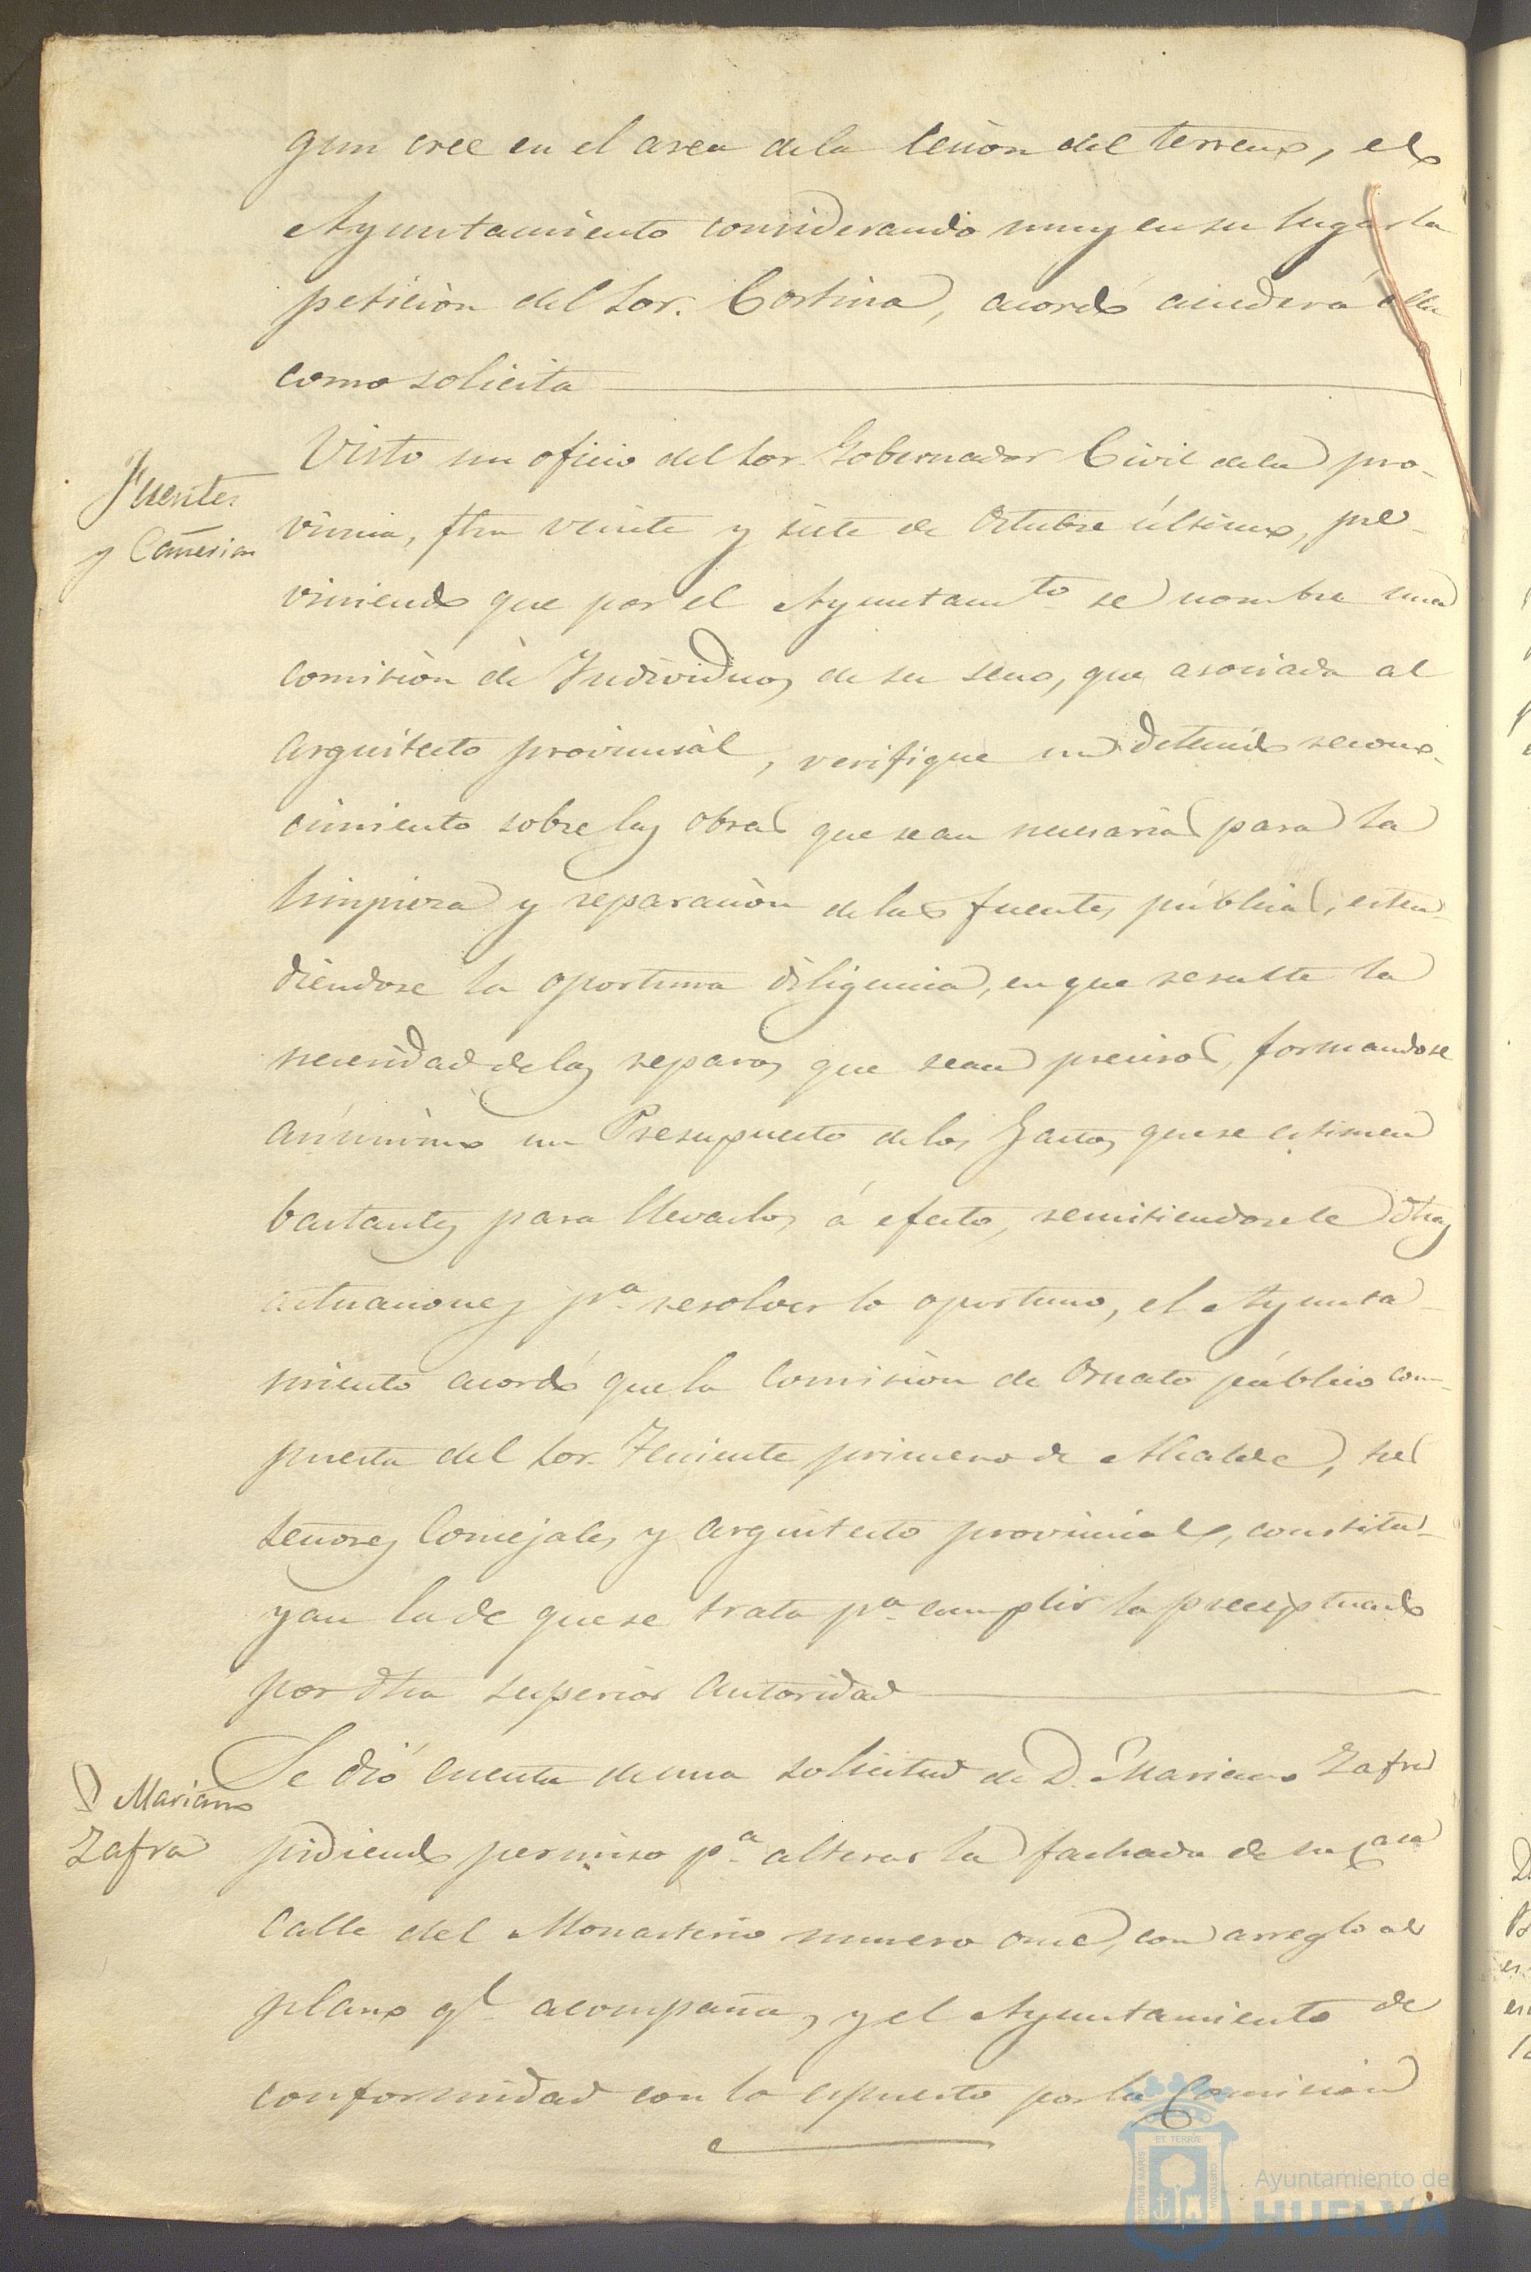 gun cree en el area dela Cesion del terreno, el
Ayuntamiento considerando muy en su lugar la
peticion del Sor. Cortina, acordó acceder á ella
como solicita
Fuentes
y Cañerias
Visto un oficio del Sor. Gobernador Civil dela pro-
vincia, fha veinte y siete de Octubre último, pre-
viniendo que por el Ayuntamto se nombre una
comision de Individuos de su seno, que asociada al
Arquitecto provincial, verifique un detenido recono-
cimiento sobre las obras que sean necesarias para la
limpieza y reparacion delas fuentes públicas, esten-
diendose la oportuna diligencia, en que resulte la
necesidad delos reparos que sean precisos, formandose
asimismo un Presupuesto delos Gastos que se estimen
bastantes para llevarlos á efecto, remitiendosele dhas
actuaciones pa. resolver lo oportuno, el Ayunta-
miento acordó que la Comision de Ornato público com-
puesta del Sor. Teniente primero de Alcalde, sus
Señores Concejales y Arquitecto provincial, constitu-
yan la de que se trata pa cumplir lo preceptuado
por dha superior autoridad
D Mariano
Zafra
Se dió cuenta de una solicitud de D. Mariano Zafra
pidiendo permiso pa. alterar la fachada de su casa
Calle del Monasterio numero once, con arreglo al
plano ql. acompaña, y el Ayuntamiento de
conformidad con lo espuesto por la Comision
Ayuntamiento de
HUELVA